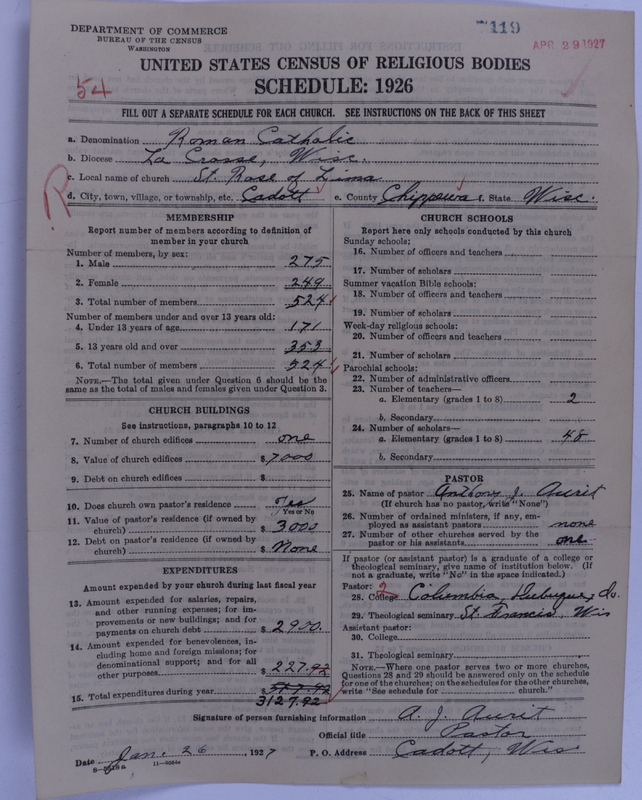 DEPARTMENT OF COMMERCE
BUREAU OF THE CENSUS
WASHINGTON
119
APR 29 1927
UNITED STATES CENSUS OF RELIGIOUS BODIES
54
SCHEDULE: 1926
FILL OUT A SEPARATE SCHEDULE FOR EACH CHURCH. SEE INSTRUCTIONS ON THE BACK OF THIS SHEET
a. Denomination Roman Catholic
b. Diocese La Crosse, Wisc.
c. Local name of church St. Rose of Lima
R
d. City, town, village, or township, etc. Cadott e. County Chippewa f. State Wisc.
MEMBERSHIP
Report number of members according to definition of
member in your church
Number of members, by sex:
1. Male 275
2. Female 249
3. Total number of members 524
Number of members under and over 13 years old:
4. Under 13 years of age 171
5. 13 years old and over 353
6. Total number of members 524
NOTE.—The total given under Question 6 should be the
same as the total of males and females given under Question 3.
CHURCH BUILDINGS
See instructions, paragraphs 10 to 12
7. Number of church edifices one
8. Value of church edifices $ 7000
9. Debt on church edifices $
10. Does church own pastor's residence Yes
Yes or No
11. Value of pastor's residence (if owned by
church) $ 3000
12. Debt on pastor's residence (if owned by
church) $ None
EXPENDITURES
Amount expended by your church during last fiscal year
13. Amount expended for salaries, repairs,
and other running expenses; for im-
provements or new buildings; and for
payments on church debt $ 2900.
14. Amount expended for benevolences, in-
cluding home and foreign missions; for
denominational support; and for all
other purposes $ 227.92
15. Total expenditures during year $
3127.92
CHURCH SCHOOLS
Report here only schools conducted by this church
Sunday schools:
16. Number of officers and teachers
17. Number of scholars
Summer vacation Bible schools:
18. Number of officers and teachers
19. Number of scholars
Week-day religious schools:
20. Number of officers and teachers
21. Number of scholars
Parochial schools:
22. Number of administrative officers
23. Number of teachers—
a. Elementary (grades 1 to 8) 2
b. Secondary
24. Number of scholars—
a. Elementary (grades 1 to 8) 48
b. Secondary
PASTOR
25. Name of pastor Anthony J. Aurit
(If church has no pastor, write "None")
26. Number of ordained ministers, if any, em-
ployed as assistant pastors none
27. Number of other churches served by the
pastor or his assistants one
If pastor (or assistant pastor) is a graduate of a college or
theological seminary, give name of institution below. (If
not a graduate, write "No" in the space indicated.)
Pastor: 2
28. College Columbia, Dubuque, Io.
29. Theological seminary St. Francis, Wis
Assistant pastor:
30. College
31. Theological seminary
NOTE.—Where one pastor serves two or more churches,
Questions 28 and 29 should be answered only on the schedule
for one of the churches; on the schedules for the other churches,
write "See schedule for church."
Signature of person furnishing information A. J. Aurit
Official title Pastor
Date Jan. 26, 1927 P. O. Address Cadott, Wis